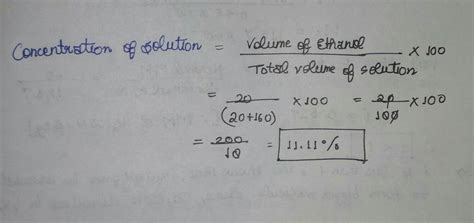 Concentration of Solution = Volume of Ethanol / Total volume of solution × 100
= 20 / (20+160) × 100 = 20 / 180 × 100
= 200 / 18 = 11.11%